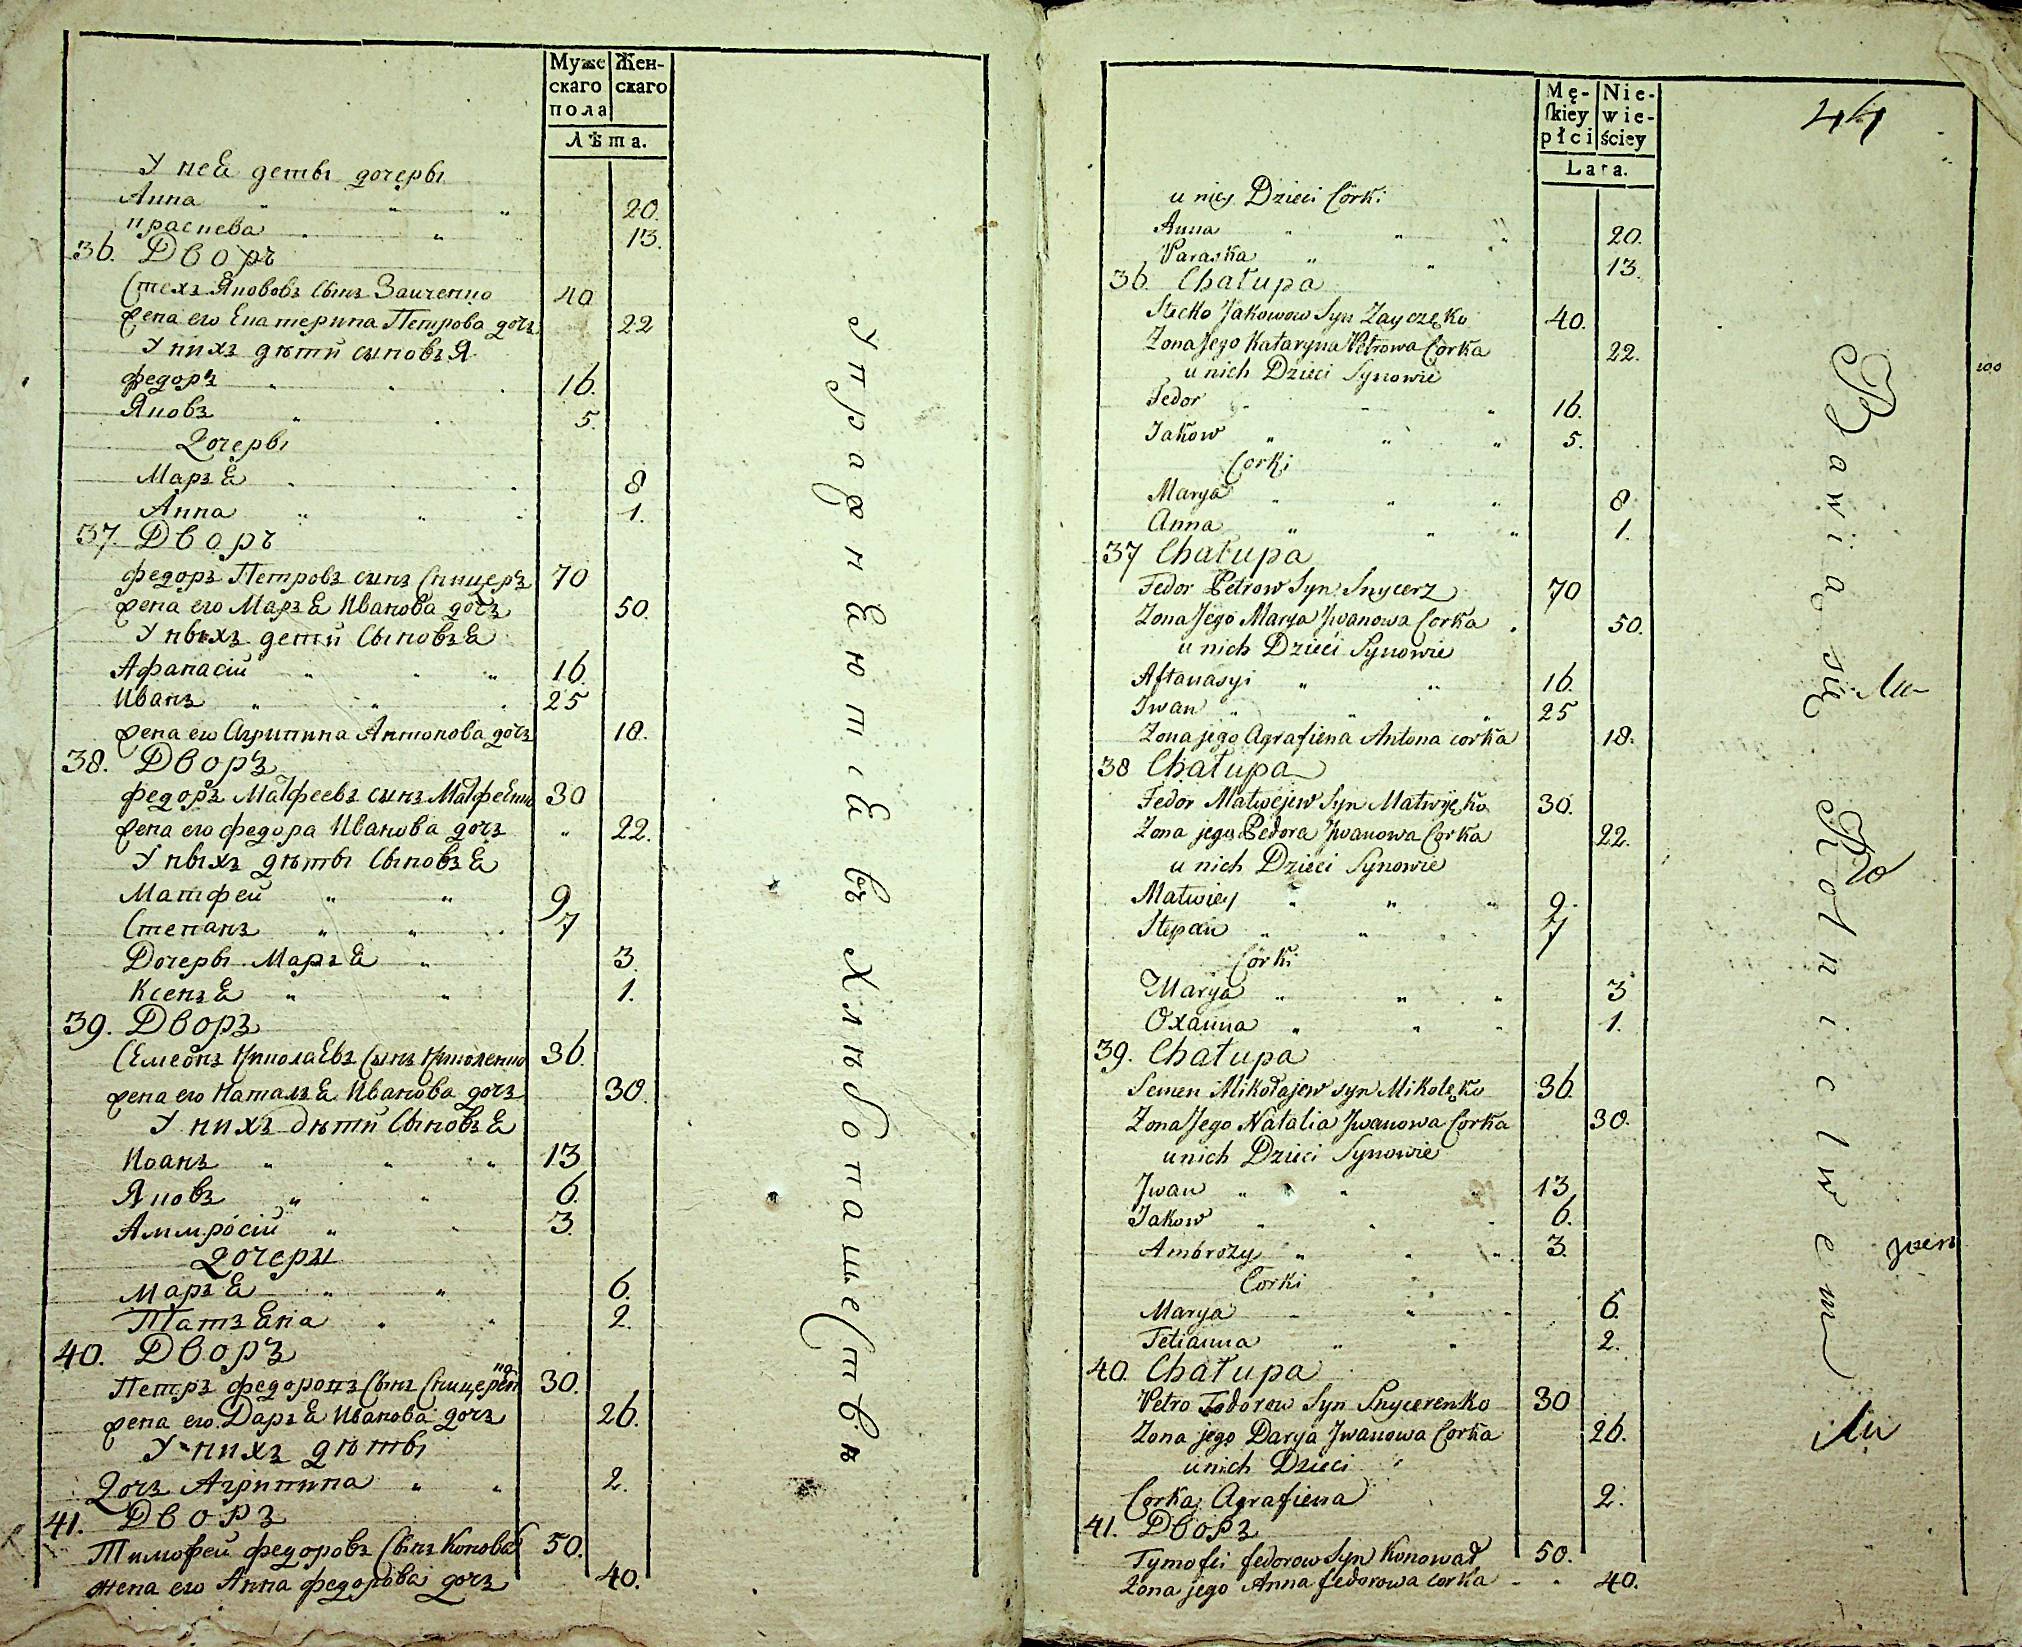 Муже Жен-
скаго скаго
пола
Лѣта.
У неѣ деты дочеры
Анна 20.
праскева 13.
36. Дворъ
Стехъ Якововъ сынъ Заиченко 40
жена его Екатерина Петрова дочъ 22
У нихъ дѣти сыновъя
федоръ 16.
Яковъ 5.
Дочеры
Маръѣ 8
Анна 1.
37. Дворъ
федоръ Петровъ сынъ Сницеръ 70
жена его Маръѣ Иванова дочъ 50.
У ныхъ дети сыновъѣ
Афанасій 16.
Иванъ 25
жена его Агрипина Антонова дочъ 18.
38. Дворъ
федоръ Матфеевъ сынъ Матфеенко 30
жена его федора Иванова дочъ 22.
У ныхъ дѣты сыновъѣ
Матфей 9
Степанъ 7
Дочеры Маръѣ 3.
Ксенъѣ 1.
39. Дворъ
Семеонъ Николаевъ сынъ Николенко 36.
жена его Наталъѣ Иванова дочъ 30.
У нихъ дѣти сыновъѣ
Иоанъ 13
Яковъ 6.
Аммросій 3.
Дочеры
Маръѣ 6.
Татъѣна 2.
40. Дворъ
Петръ федоровъ сынъ Сницеренко 30.
жена его Даръѣ Иванова дочъ 26.
У нихъ дѣты
Дочъ Агрипина 2.
41. Дворъ
Тимофей федоровъ сынъ Коновал 50.
жена его Анна федорова дочъ 40.
Упражнѣютсѣ въ хлѣбопашествѣ
Mę- Nie-
skiey wie-
płci ściey
Lata.
44
u niey Dzieci Corki
Anna 20.
Paraska 13.
36. Chałupa
Stecko Jakowow Syn Zayczęko 40.
Zona Jego Kataryna Petrowa Corka 22.
u nich Dzieci Synowie
Fedor 16.
Jakow 5.
Corki
Marya 8
Anna 1.
37 Chałupa
Fedor Petrow Syn Snycerz 70
Zona Jego Marya Jwanowa Corka 50.
u nich Dzieci Synowie
Aftanasyi 16.
Jwan 25
Zona jego Agrafiena Antona corka 18.
38 Chałupa
Fedor Matwejew Syn Matwyęko 30.
Zona jego Fedora Jwanowa Corka 22.
u nich Dzieci Synowie
Matwiey 9.
Stepan 7
Córki
Marya 3
Oxanna 1.
39. Chałupa
Semen Mikołajew syn Mikolęko 36.
Zona Jego Natalia Jwanowa Corka 30.
u nich Dzieci Synowie
Jwan 13
Jakow 6.
Ambrozy 3.
Corki
Marya 6.
Tetianna 2.
40. Chałupa
Petro Fodorow Syn Snycerenko 30
Zona jego Darya Jwanowa Corka 26.
u nich Dzieci
Corka Agrafiena 2.
41. Дворъ
Tymofei fedorow Syn Konował 50.
Zona jego Anna fedorowa corka 40.
Bawią się Rolnictwem